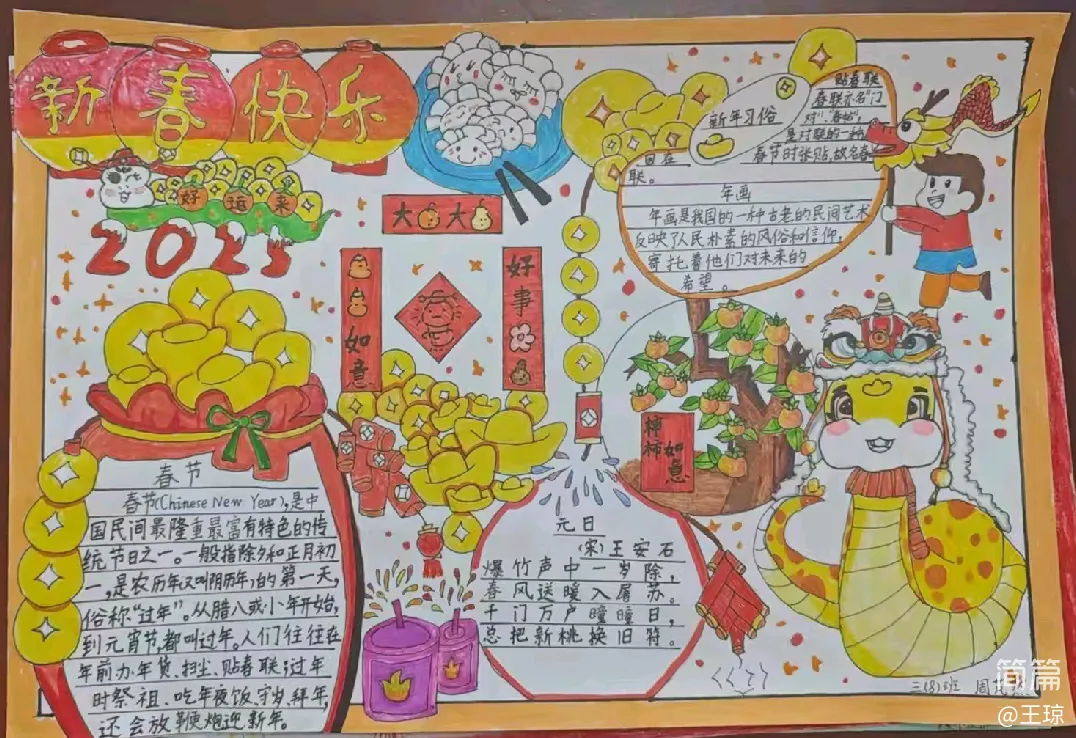 新春快乐
好运来
2025
大大
如意
好事
新年习俗
贴春联
春联亦名"门
对"、"春帖",
是对联的一种,
因在
春节时张贴,故名春
联。
年画
年画是我国的一种古老的民间艺术
反映了人民朴素的风俗和信仰,
寄托着他们对未来的
希望。
柿柿如意
春节
春节(Chinese New Year),是中
国民间最隆重最富有特色的传
统节日之一。一般指除夕和正月初
一,是农历年(又叫阴历年)的第一天,
俗称"过年"。从腊八或小年开始,
到元宵节,都叫过年。人们往往在
年前办年货、扫尘、贴春联;过年
时祭祖、吃年夜饭、守岁、拜年,
还会放鞭炮迎新年。
元日
(宋)王安石
爆竹声中一岁除,
春风送暖入屠苏。
千门万户瞳瞳日,
总把新桃换旧符。
三(8)班 周
简篇
@王琼